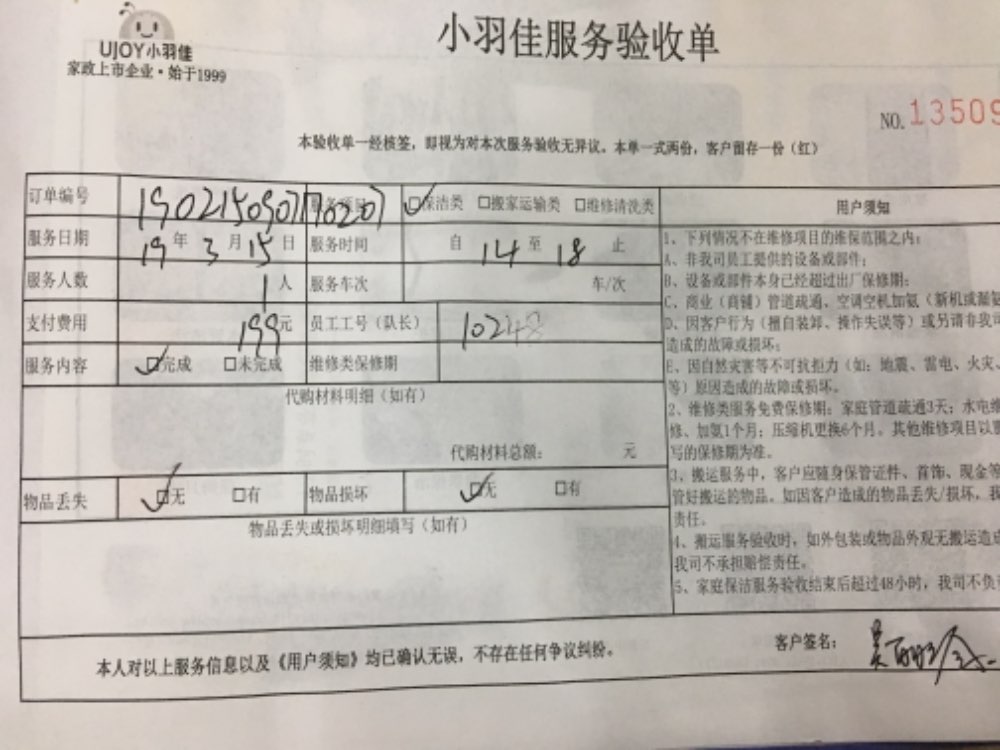 小羽佳服务验收单
UJOY小羽佳
家政上市企业·始于1999
NO.13509
本验收单一经核签，即视为对本次服务验收无异议。本单一式两份，客户留存一份（红）
订单编号 服务项目 ☑保洁类 □搬家运输类 □维修清洗类 用户须知
服务日期 19年3月15日 服务时间 自14至18止
服务人数 1人 服务车次 车/次
支付费用 199元 员工工号（队长） 10248
服务内容 ☑完成 □未完成 维修类保修期
代购材料明细（如有）
代购材料总额： 元
物品丢失 ☑无 □有 物品损坏 ☑无 □有
物品丢失或损坏明细填写（如有）
1、下列情况不在维修项目的维保范围之内：
A、非我司员工提供的设备或部件；
B、设备或部件本身已经超过出厂保修期；
C、商业（商铺）管道疏通，空调空机加氨（新机或漏氨
D、因客户行为（擅自装卸、操作失误等）或另请非我司
造成的故障或损坏；
E、因自然灾害等不可抗拒力（如：地震、雷电、火灾、
等）原因造成的故障或损坏。
2、维修类服务免费保修期：家庭管道疏通3天；水电维
修、加氨1个月；压缩机更换6个月。其他维修项目以
写的保修期为准。
3、搬运服务中，客户应随身保管证件、首饰、现金等
管好搬运的物品。如因客户造成的物品丢失/损坏，我
责任。
4、搬运服务验收时，如外包装或物品外观无搬运造成
我司不承担赔偿责任。
5、家庭保洁服务验收结束后超过48小时，我司不负责
客户签名：
本人对以上服务信息以及《用户须知》均已确认无误，不存在任何争议纠纷。